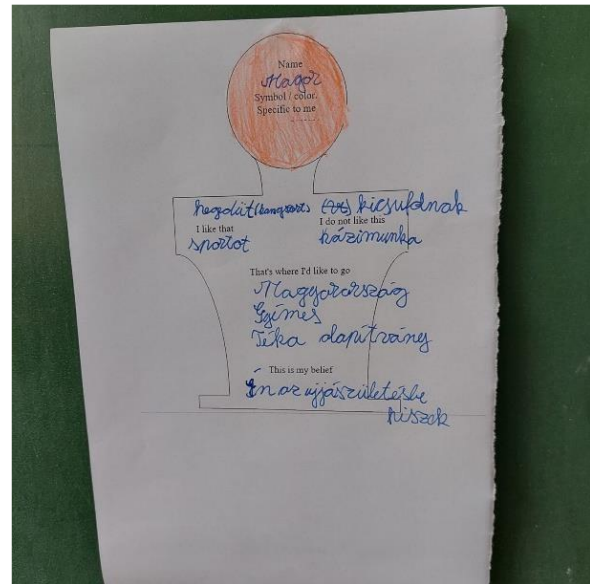 Name
Magor
Symbol / color.
Specific to me
hegedűt (hangszert) kicsufolnak
I like that I do not like this
sportot házimunka
That's where I'd like to go
Magyarország
Gyimes
Téka alapítvány
This is my belief
Én az ujjászületésbe
hiszek